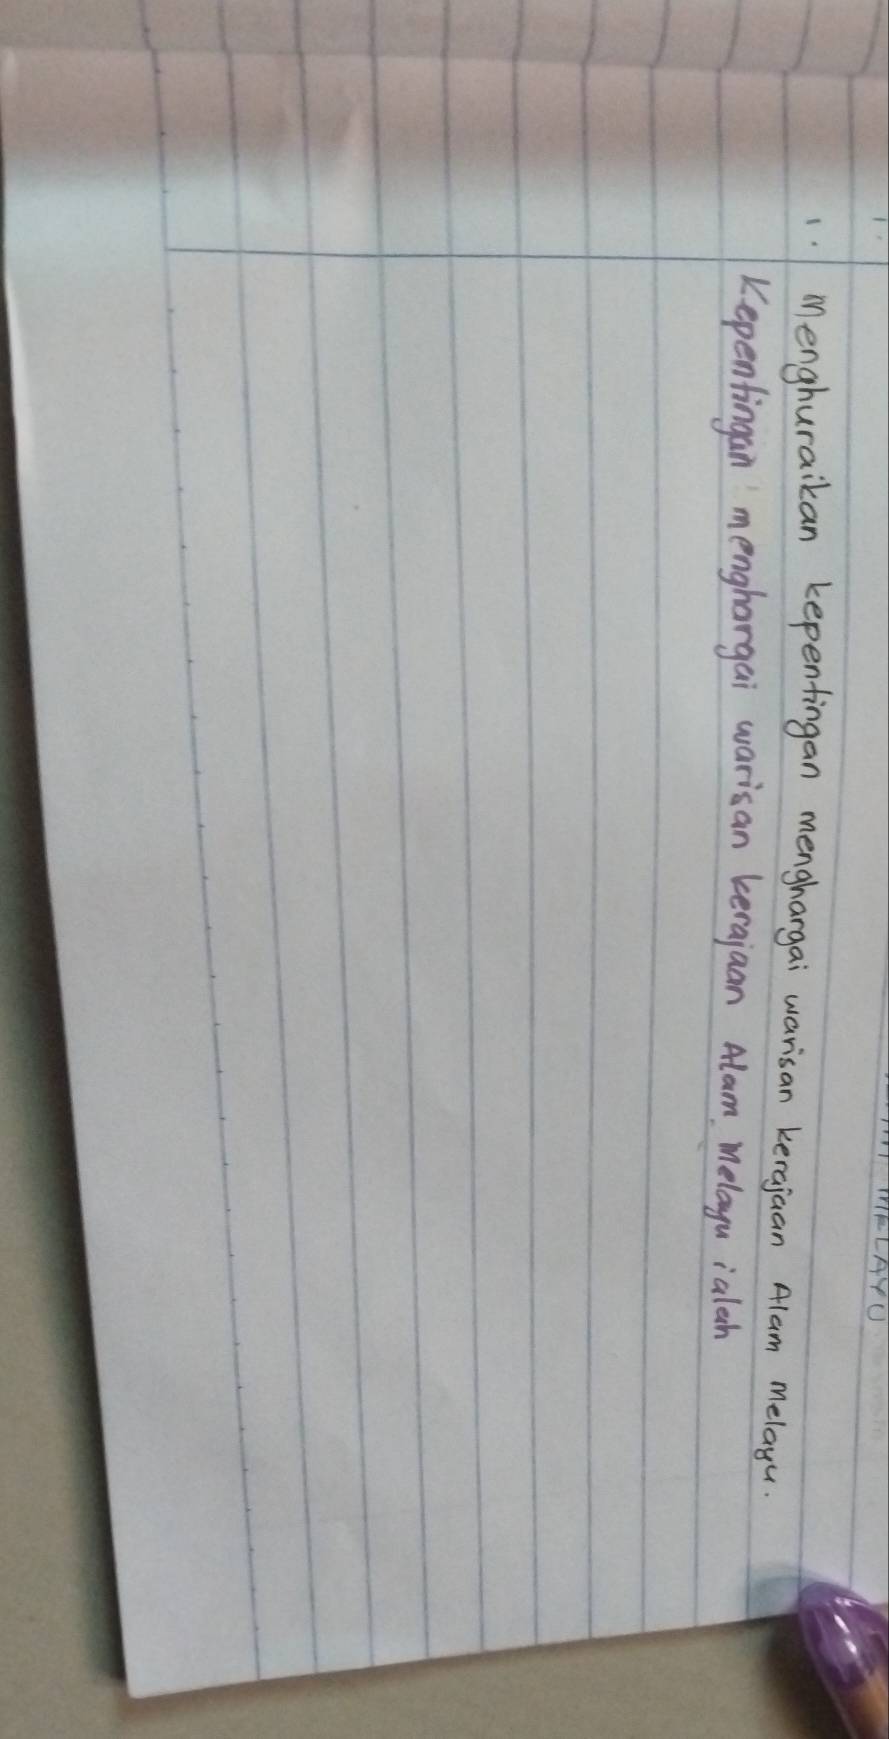 MELAYU
1.
1. Menghuraikan kepentingan menghargai warisan kerajaan Alam Melayu.
Kepentingan menghargai warisan kerajaan Alam Melayu ialah